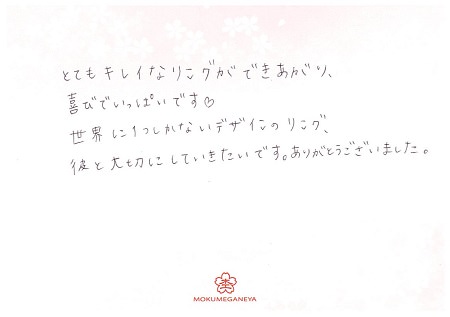 とてもキレイなリングができあがり、
喜びでいっぱいです♡
世界に1つしかないデザインのリング、
彼と大切にしていきたいです。ありがとうございました。
MOKUMEGANEYA